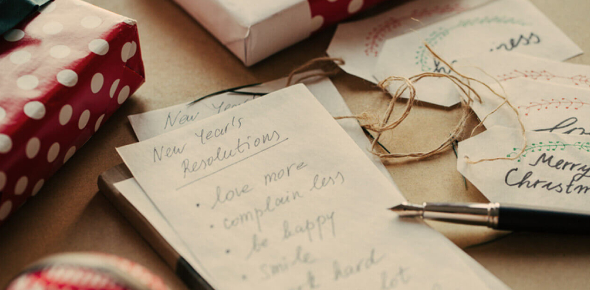 New Year's
New Year's
Resolutions
• love more
• complain less
• be happy
• smile
hard
lot
Merry
Christm